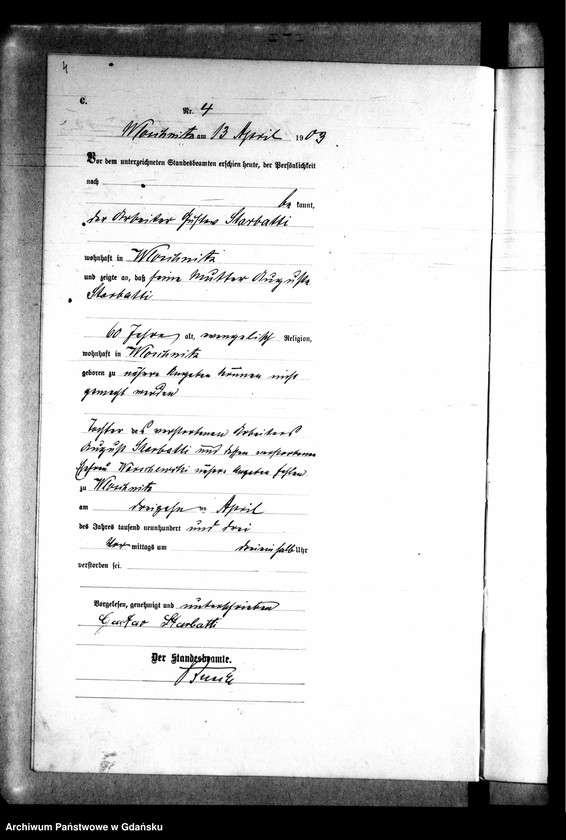 4
C.
Nr. 4
Wloschnitz am 13 April 1903
Vor dem unterzeichneten Standesbeamten erschien heute, der Persönlichkeit
nach
bekannt,
der Arbeiter Gustav Starbatti
wohnhaft in Wloschnitz
und zeigte an, daß seine Mutter Auguste
Starbatti
60 Jahre alt, evangelisch Religion,
wohnhaft in Wloschnitz
geboren zu nähere Angaben können nicht
gemacht werden
Tochter des verstorbenen Arbeiters
August Starbatti und dessen verstorbenen
Ehefrau nähere Angaben fehlen
zu Wloschnitz
am dreizehn April
des Jahres tausend neunhundert und drei
Vormittags um drei einhalb Uhr
verstorben sei.
Vorgelesen, genehmigt und unterschrieben
Gustav Starbatti
Der Standesbeamte.
Archiwum Państwowe w Gdańsku